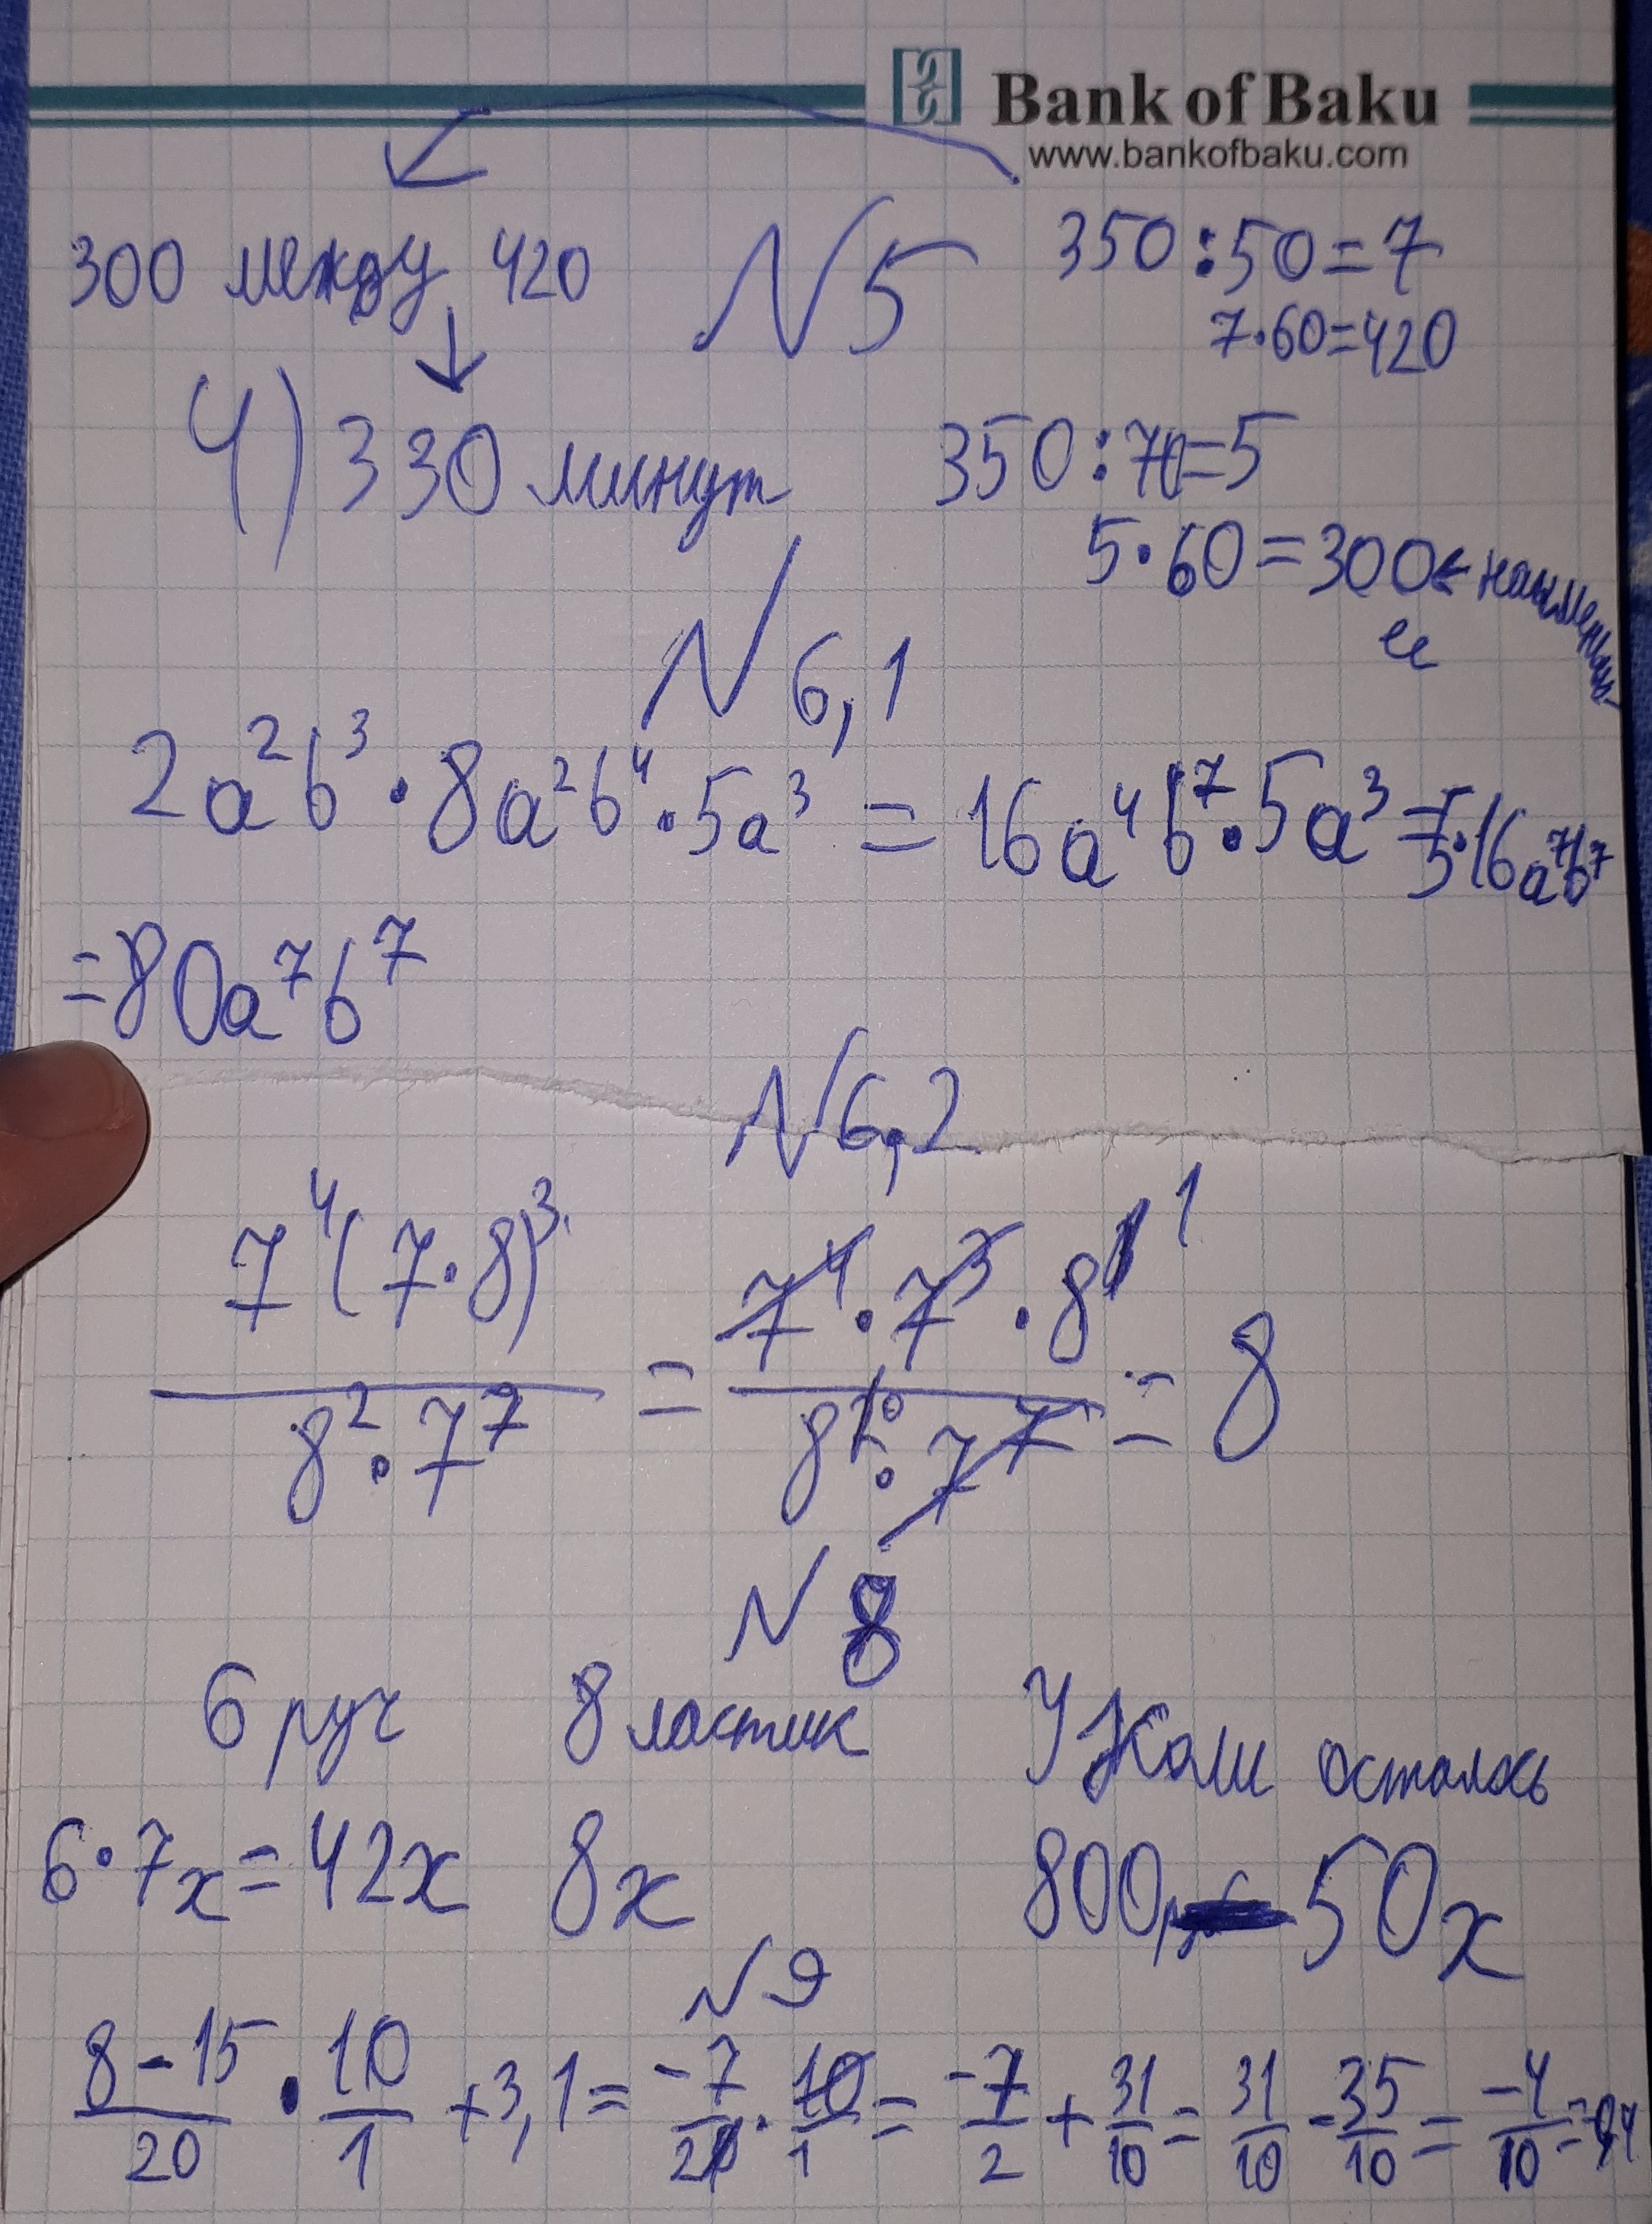 Bank of Baku
www.bankofbaku.com
300 между 420
N5
350:50=7
7·60=420
4) 330 минут
350:70=5
5·60=300← наименьш
ее
N6,1
2a²b³·8a²b⁴·5a³=16a⁴b⁷·5a³=5·16a⁷b⁷
=80a⁷b⁷
N6,2
7⁴(7·8)³/8²·7⁷ = 7⁴·7³·8¹/8⁰·7⁷ = 8
N8
6 руч 8 ластик У Коли осталось
6·7x=42x 8x 800-50x
N9
8-15/20 · 10/1 +3,1= -7/20 · 10/1 = -7/2 + 31/10 = 31/10 - 35/10 = -4/10 =-0,4